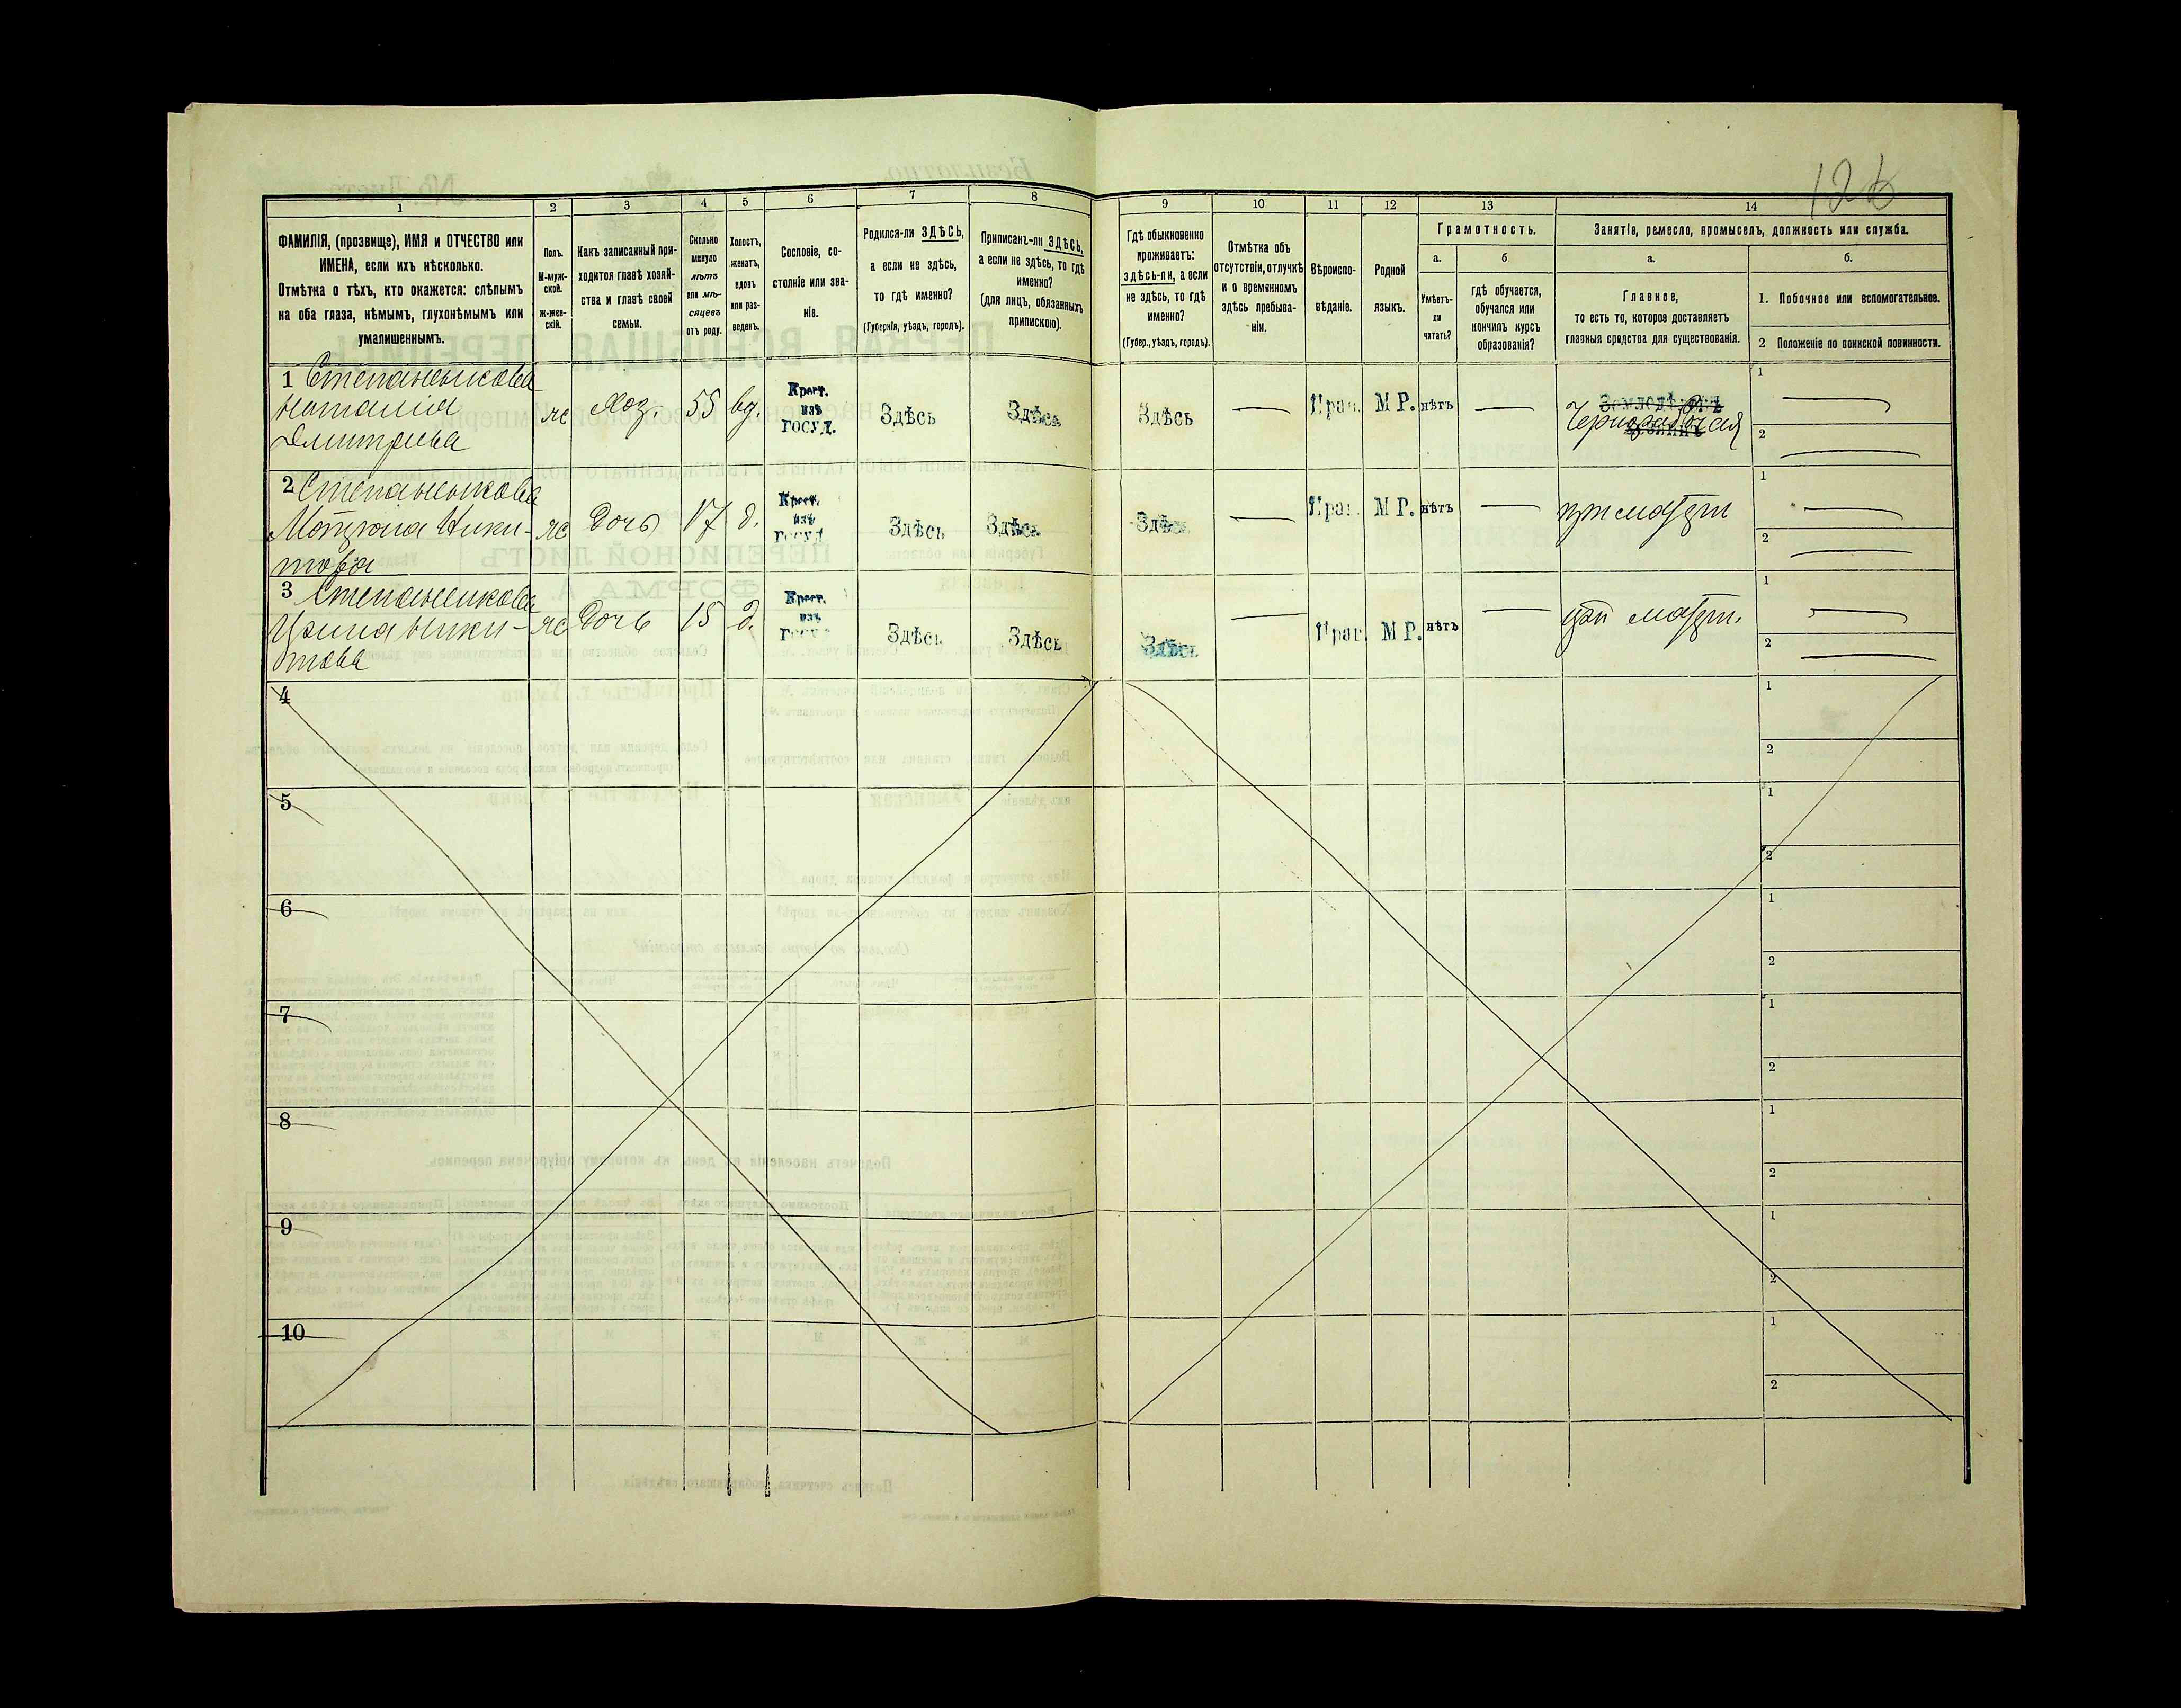 126
1 2 3 4 5 6 7 8 9 10 11 12 13 14
ФАМИЛІЯ, (прозвище), ИМЯ и ОТЧЕСТВО или
ИМЕНА, если ихъ нѣсколько.
Отмѣтка о тѣхъ, кто окажется: слѣпымъ
на оба глаза, нѣмымъ, глухонѣмымъ или
умалишеннымъ.
Полъ.
М-муж-
ской.
Ж-жен-
скій.
Какъ записанный при-
ходится главѣ хозяй-
ства и главѣ своей
семьи.
Сколько
минуло
лѣтъ
или мѣ-
сяцевъ
отъ роду.
Холостъ,
женатъ,
вдовъ
или раз-
веденъ.
Сословіе, со-
стояніе или зва-
ніе.
Родился-ли ЗДѢСЬ,
а если не здѣсь,
то гдѣ именно?
(Губернія, уѣздъ, городъ).
Приписанъ-ли ЗДѢСЬ,
а если не здѣсь, то гдѣ
именно?
(для лицъ, обязанныхъ
припискою).
Гдѣ обыкновенно
проживаетъ:
здѣсь-ли, а если
не здѣсь, то гдѣ
именно?
(Губер., уѣздъ, городъ).
Отмѣтка объ
отсутствіи, отлучкѣ
и о временномъ
здѣсь пребыва-
ніи.
Вѣроиспо-
вѣданіе.
Родной
языкъ.
Грамотность.
а.
Умѣетъ-
ли
читать?
б
гдѣ обучается,
обучался или
кончилъ курсъ
образованія?
Занятія, ремесло, промыселъ, должность или служба.
а.
Главное,
то есть то, которое доставляетъ
главныя средства для существованія.
б.
1. Побочное или вспомогательное.
2 Положеніе по воинской повинности.
1 Степаненкова
Наталія
Дмитриева
ж
Хоз.
55
вд.
Крест.
изъ
ГОСУД.
Здѣсь
Здѣсь
Здѣсь
Прав.
М Р.
нѣтъ
Чернорабочая
1
2
2 Степаненкова
Мотрона Ники-
това
ж
Дочь
17
д.
Крест.
изъ
ГОСУД
Здѣсь
Здѣсь
Здѣсь
Прав.
М Р.
нѣтъ
при матери
1
2
3 Степаненкова
Ирина Ники-
това
ж
Дочь
15
д.
Крест.
изъ
ГОСУД
Здѣсь
Здѣсь
Здѣсь
Прав.
М Р.
нѣтъ
при матери.
1
2
4
1
2
5
1
2
6
1
2
7
1
2
8
1
2
9
1
2
10
1
2